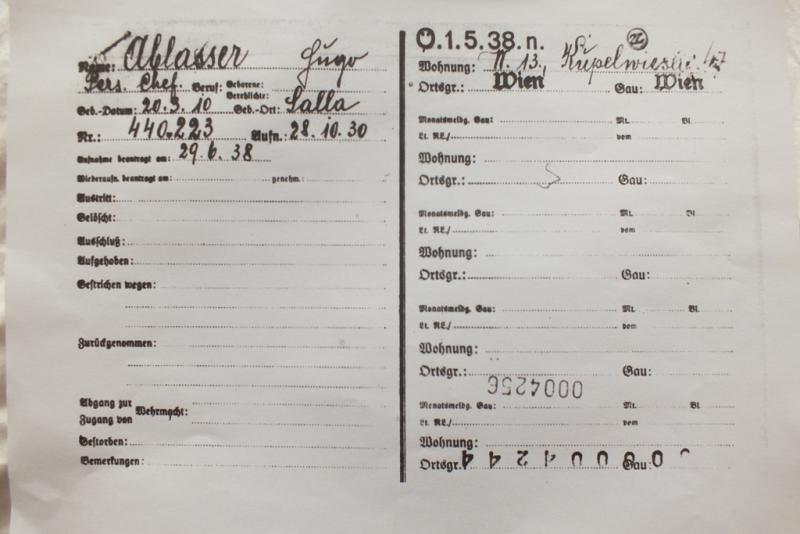 Name: Ablasser Hugo
Pers. Chef. Beruf: Geborene:
Verehlichte:
Geb.-Datum: 20.3.10 Geb.-Ort: Salla
Nr.: 440.223 Aufn.: 28.10.30
Aufnahme beantragt am: 29.6.38
Wiederaufn. beantragt am: genehm.:
Austritt:
Gelöscht:
Ausschluß:
Aufgehoben:
Gestrichen wegen:
Zurückgenommen:
Abgang zur
Zugang von Wehrmacht:
Gestorben:
Bemerkungen:
Ö.1.5.38.n.
Wohnung: 13, Kupelwieserg.
Ortsgr.: Wien Gau: Wien
Monatsmeldg. Gau: Mt. Bl.
Lt. RL./ vom
Wohnung:
Ortsgr.: Gau:
Monatsmeldg. Gau: Mt. Bl.
Lt. RL./ vom
Wohnung:
Ortsgr.: Gau:
Monatsmeldg. Gau: Mt. Bl.
Lt. RL./ vom
Wohnung:
Ortsgr.: Gau:
0004256
Monatsmeldg. Gau: Mt. Bl.
Lt. RL./ vom
Wohnung:
Ortsgr. Gau: